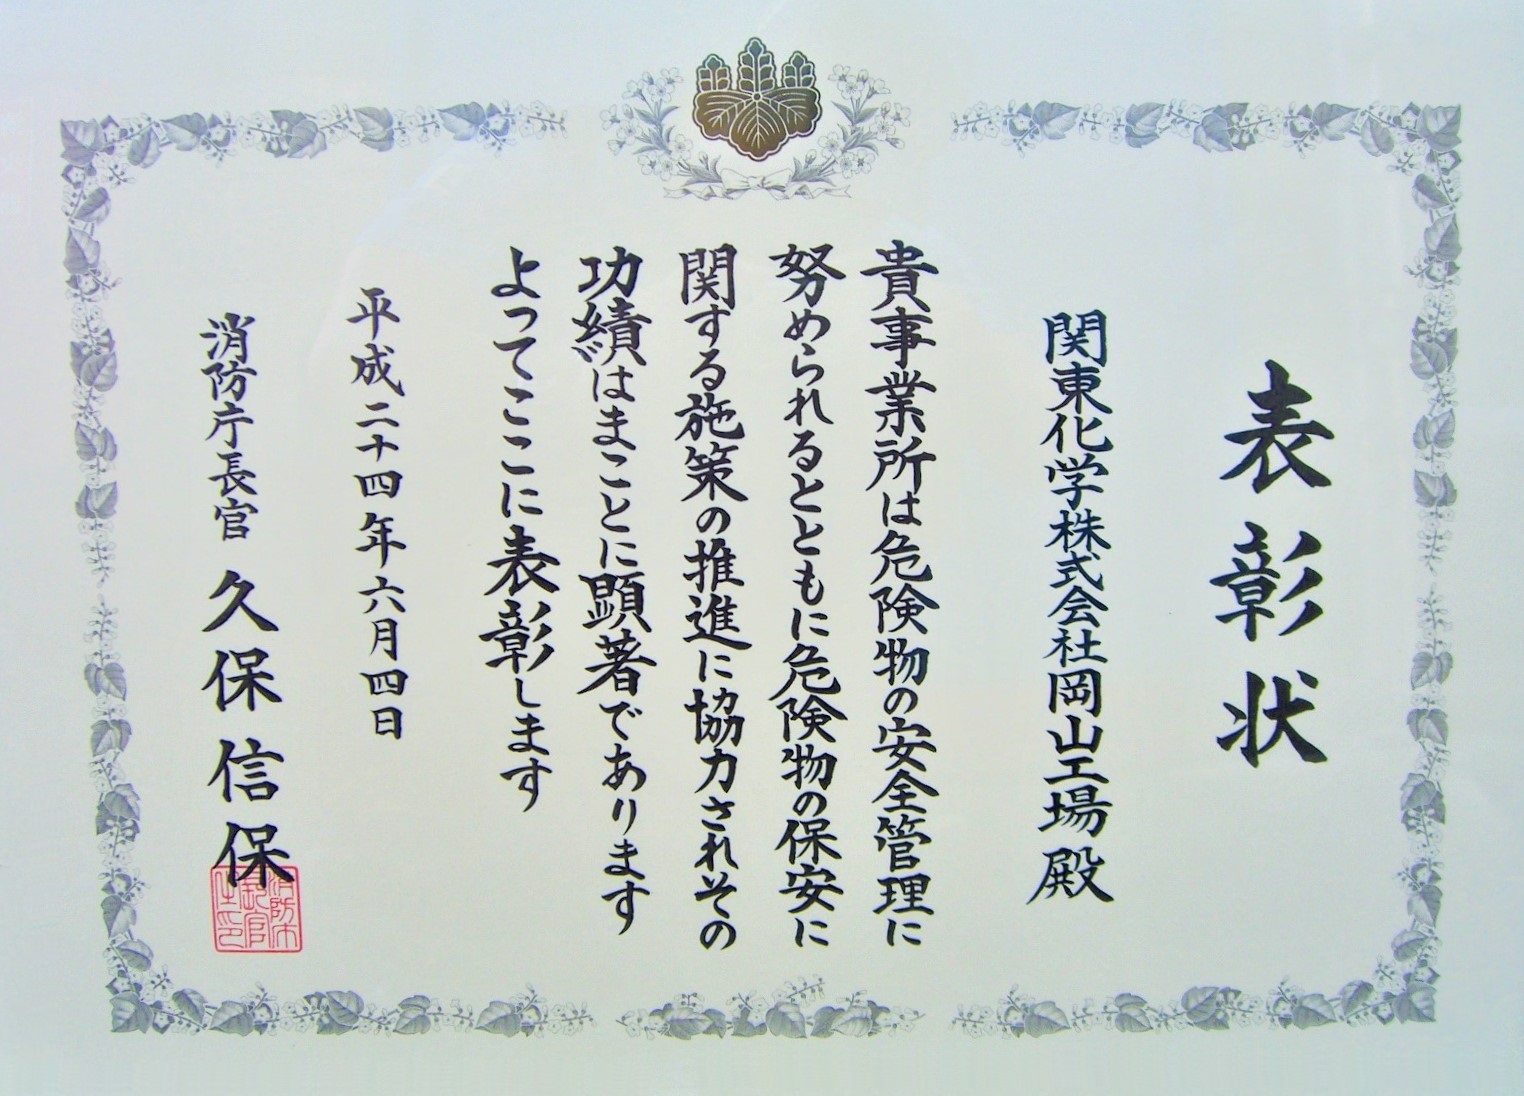 表彰状
関東化学株式会社岡山工場殿
貴事業所は危険物の安全管理に
努められるとともに危険物の保安に
関する施策の推進に協力されその
功績はまことに顕著であります
よってここに表彰します
平成二十四年六月四日
消防庁長官 久保信保